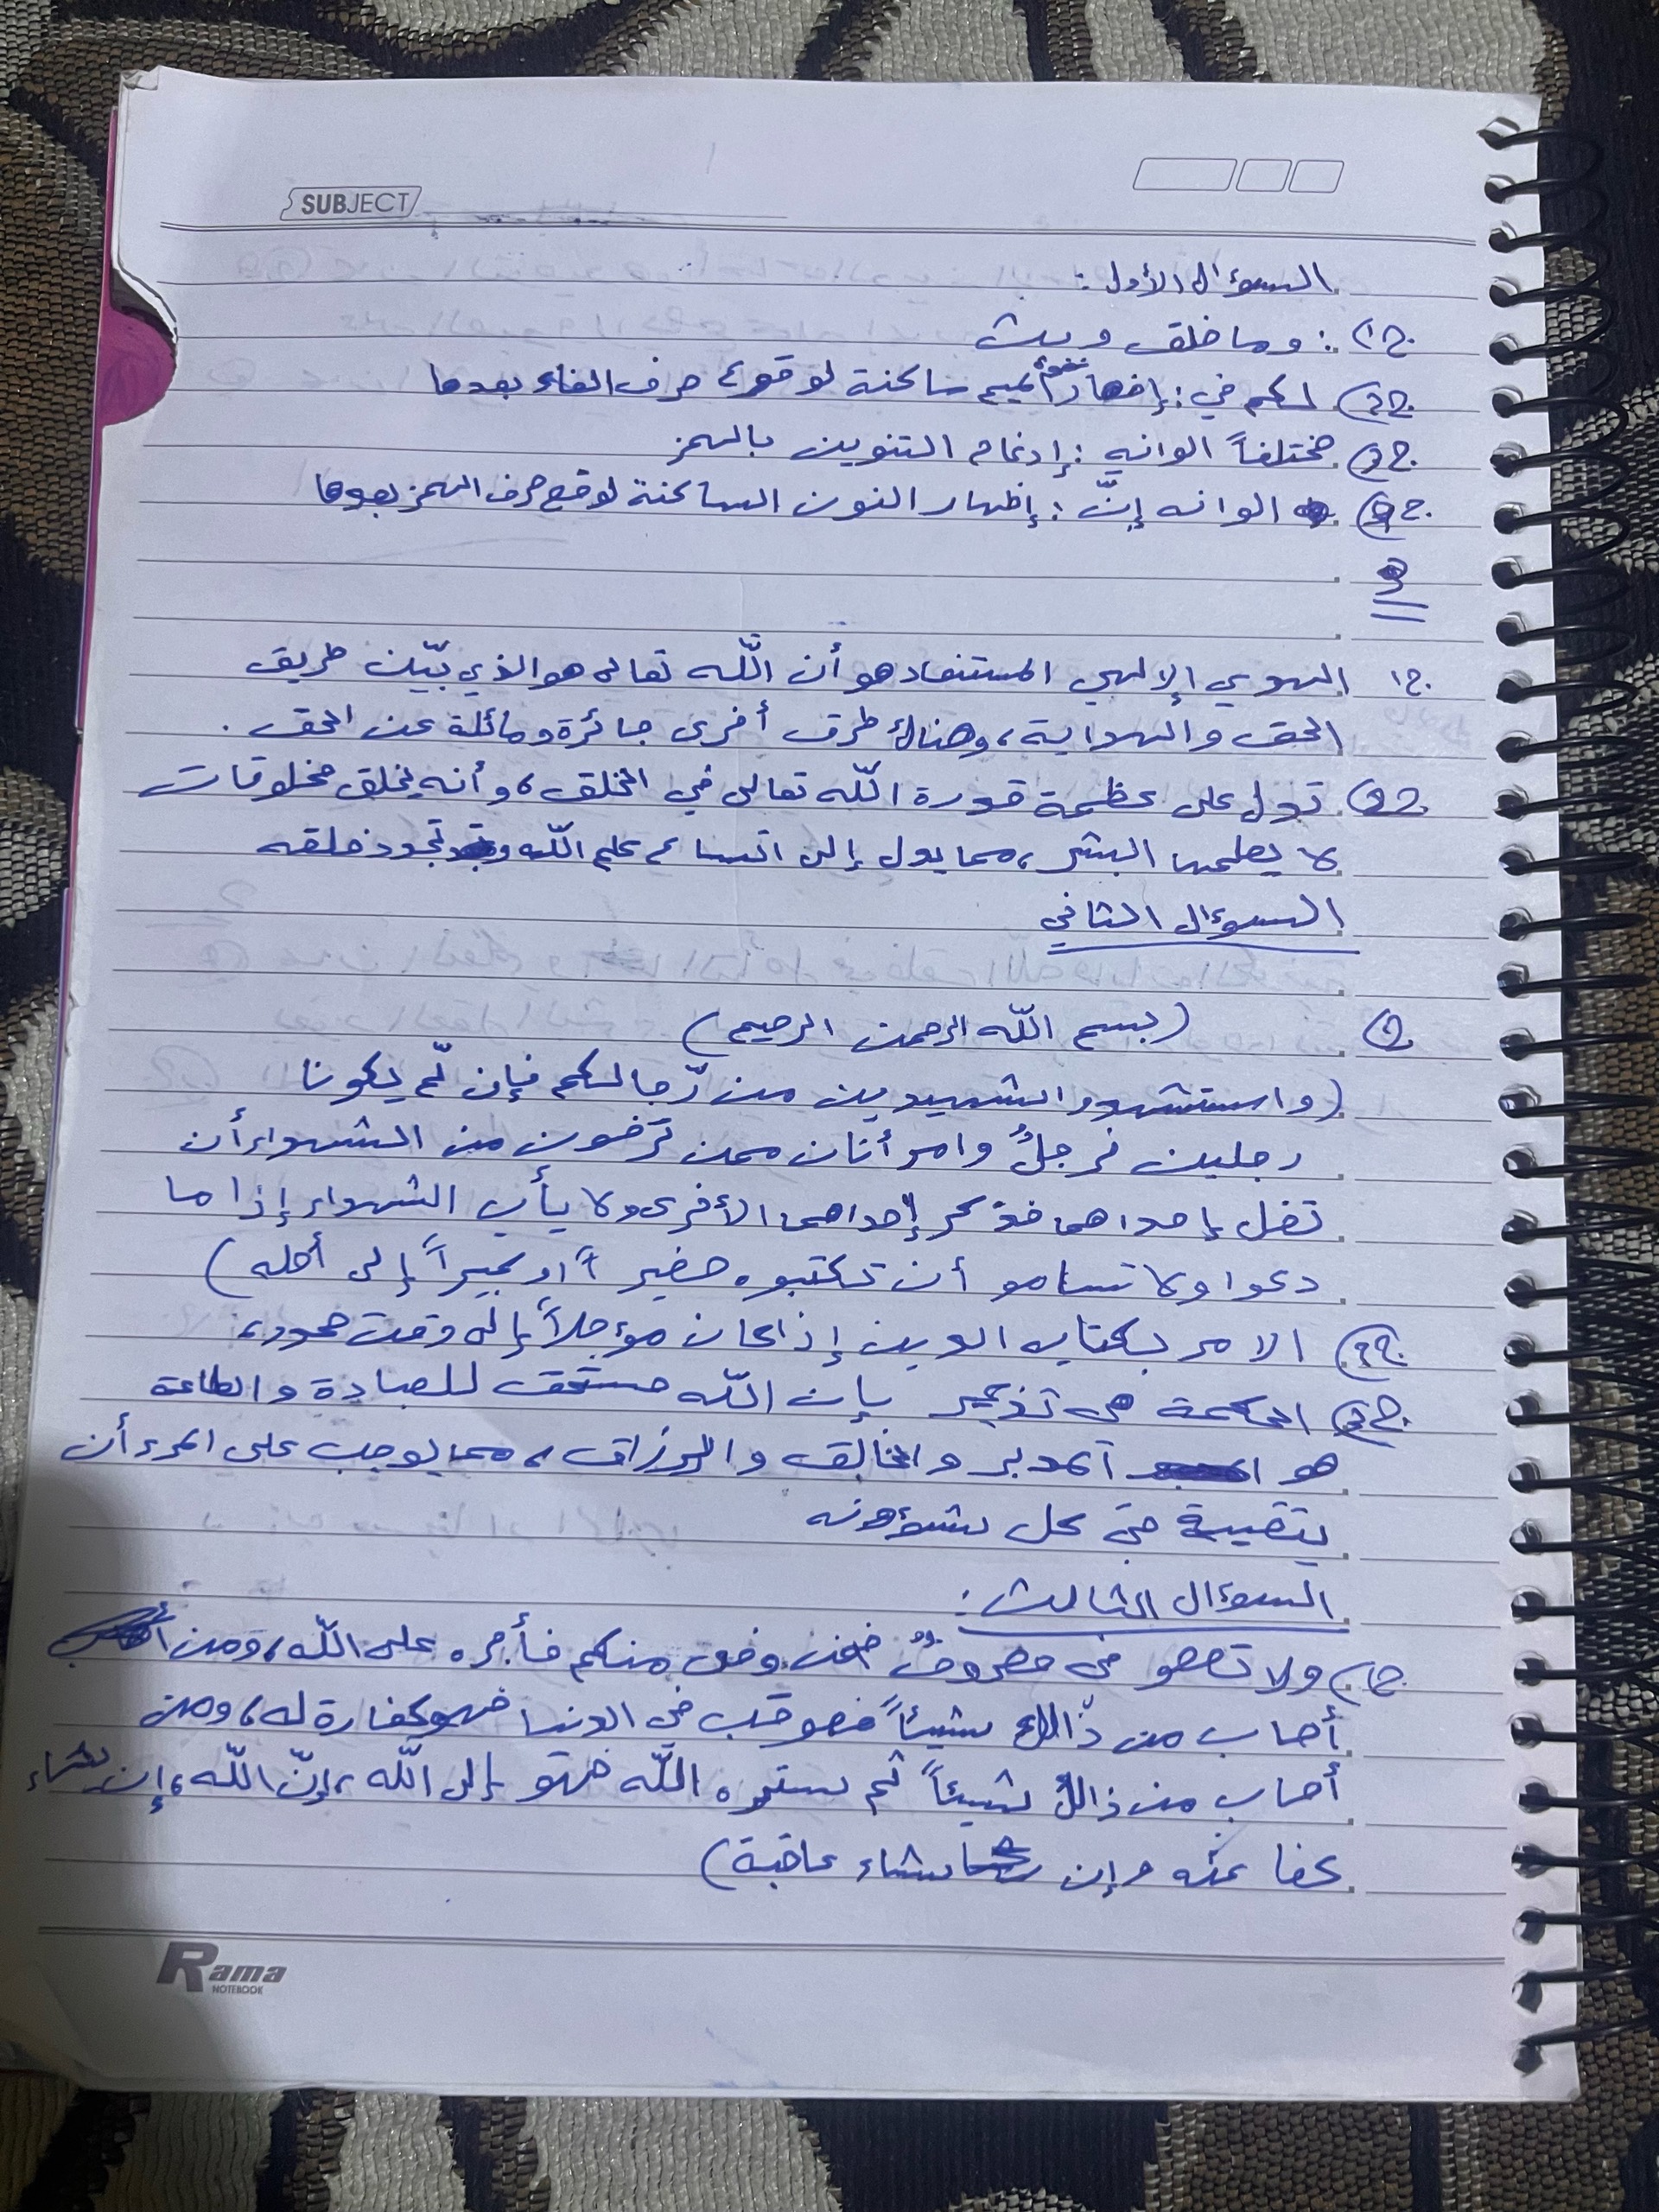 SUBJECT
السؤال الأول :
ج١) : وما خلق وبث
ج٢) لكم في : إضهار شفوي لميم ساكنة لوقوع حرف الفاء بعدها
ج٣) مختلفاً الوانه : إدغام التنوين بالهمز
ج٤) الوانه إنّ : إظهار النون الساكنة لوقع حرف الهمز بعدها
ج١ الهدي الإلهي المستفاد هو أن اللّه تعالى هو الذي بيّن طريق
الحق والهداية، وهناك طرق أخرى جائرة ومائلة عن الحق .
ج٢) تدل على عظمة قدرة اللّه تعالى في الخلق، وأنه يخلق مخلوقات
لا يعلمها البشر، مما يدل إلى اتساع علم اللّه وتجدد خلقه
السؤال الثاني
(بسم اللّه الرحمن الرحيم)
(واستشهدو الشهيدين من رّجالكم فإن لّم يكونا
رجلين فرجلٌ وامرأتان ممن ترضون من الشهداء أن
تضل إحداهما فتذكر إحداهما الأخرى ولا يأب الشهداء إذا ما
دعوا ولا تسامو أن تكتبوه صغيراً او كبيراً إلى أجله)
ج٢) الامر بكتاب الدين إذا كان مؤجلاً إلى وقت محدد،
ج٣) الحكمة هي تذكير بإن اللّه مستحق للعبادة والطاعة
هو المدبر والخالق والرزاق، مما يوجب على المرء أن
يتقيه في كل شؤونه
السؤال الثالث :
ج١) ولا تعصو في معروفٌ فمن وفى منكم فأجره على اللّه، ومن
أصاب من ذالك شيئاً فعوقب في الدنيا فهو كفارة له، ومن
أصاب من ذالك شيئاً ثم ستره اللّه فهو إلى اللّه، إنّ اللّه، إن شاء
عفا عنه وإن شاء عاقبة)
Rama
NOTEBOOK